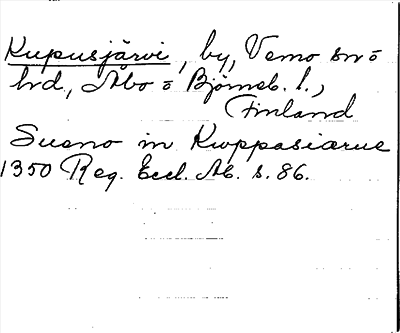 Kupusjärvi, by, Vemo sn o
hd, Åbo o Björneb. l.,
Finland
Sueno in Kuppasiærue
1350 Reg. Eccl. Ab. s. 86.